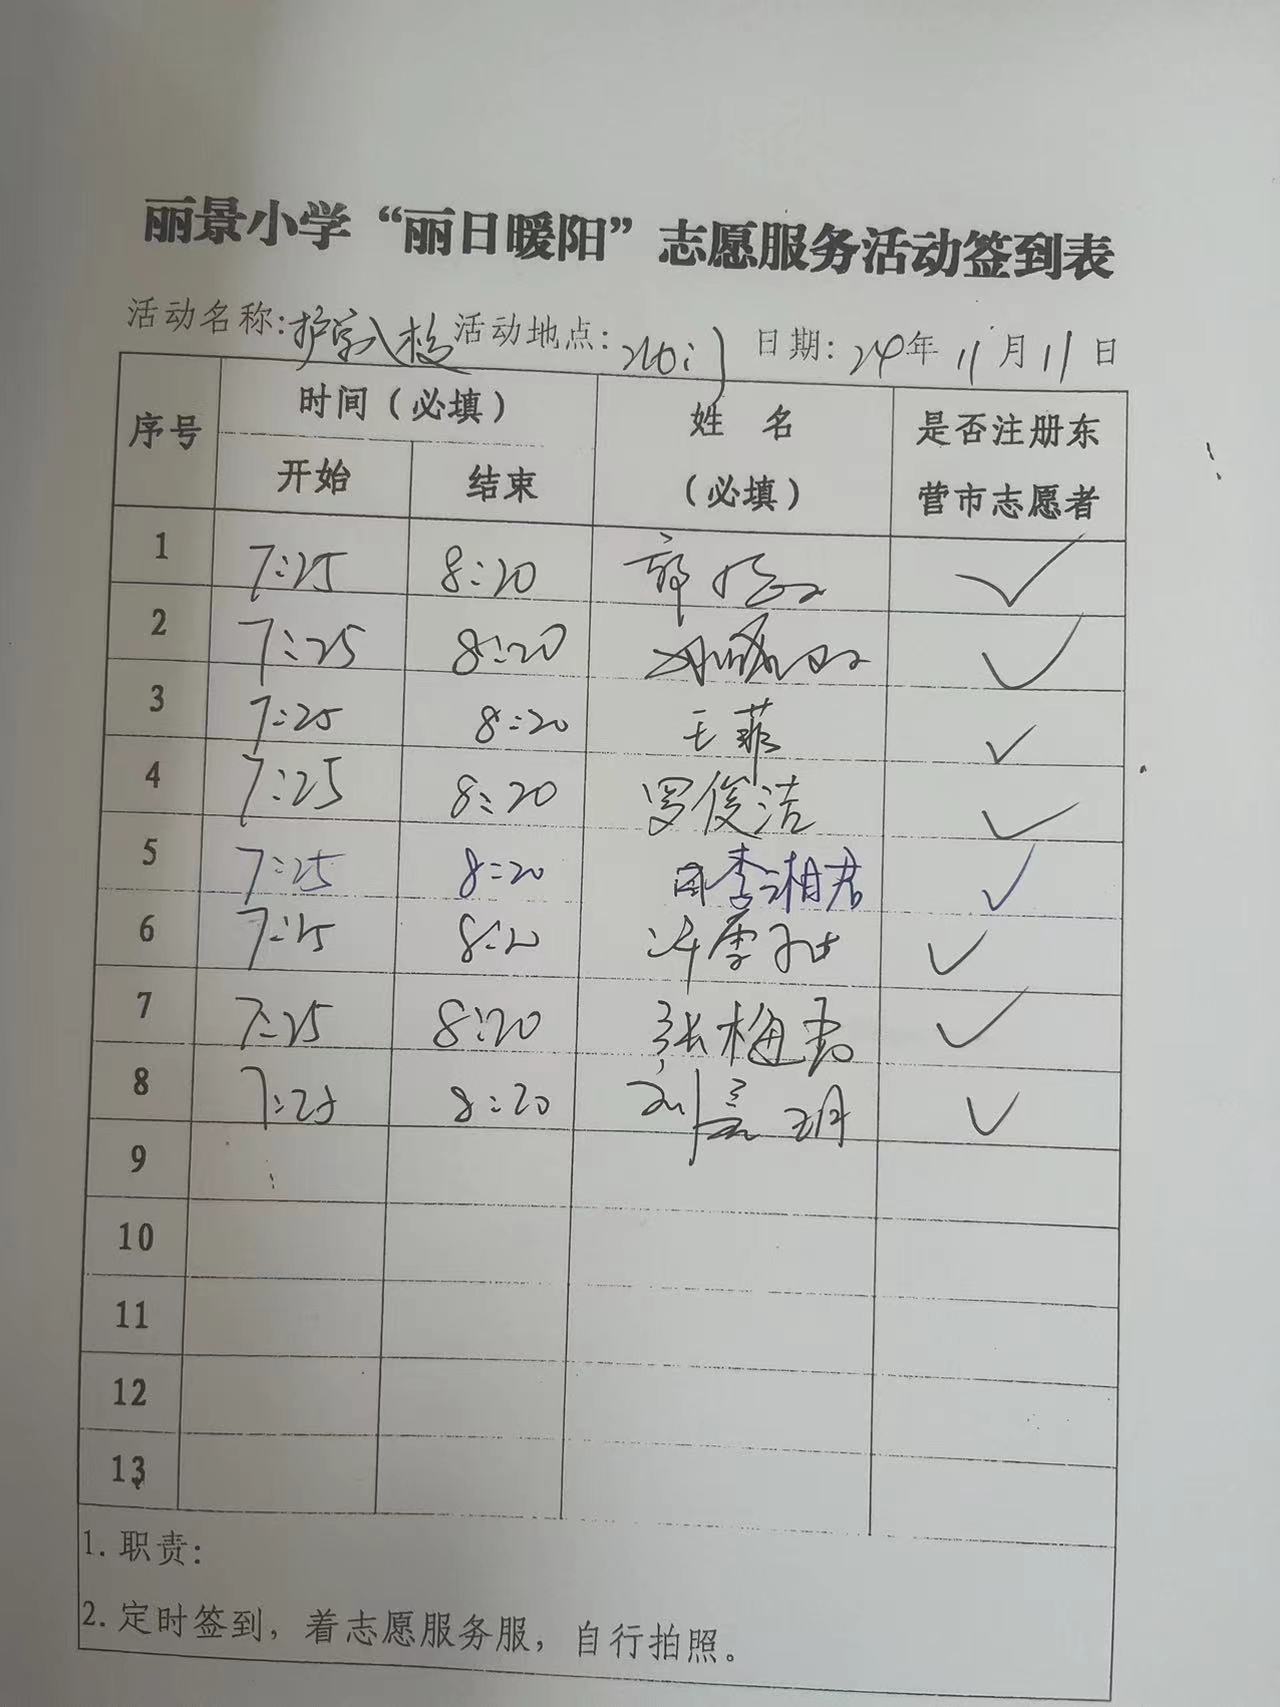 丽景小学“丽日暖阳”志愿服务活动签到表
活动名称:护学入校 活动地点: 日期: 24年 11月 11日
序号 时间(必填) 姓 名 (必填) 是否注册东营市志愿者
开始 结束
1 7:25 8:20 郭 ✓
2 7:25 8:20 ✓
3 7:25 8:20 王菲 ✓
4 7:25 8:20 罗俊洁 ✓
5 7:25 8:20 李湘君 ✓
6 7:25 8:20 许 ✓
7 7:25 8:20 张梅 ✓
8 7:25 8:20 刘 玥 ✓
9
10
11
12
13
1. 职责:
2. 定时签到，着志愿服务服，自行拍照。